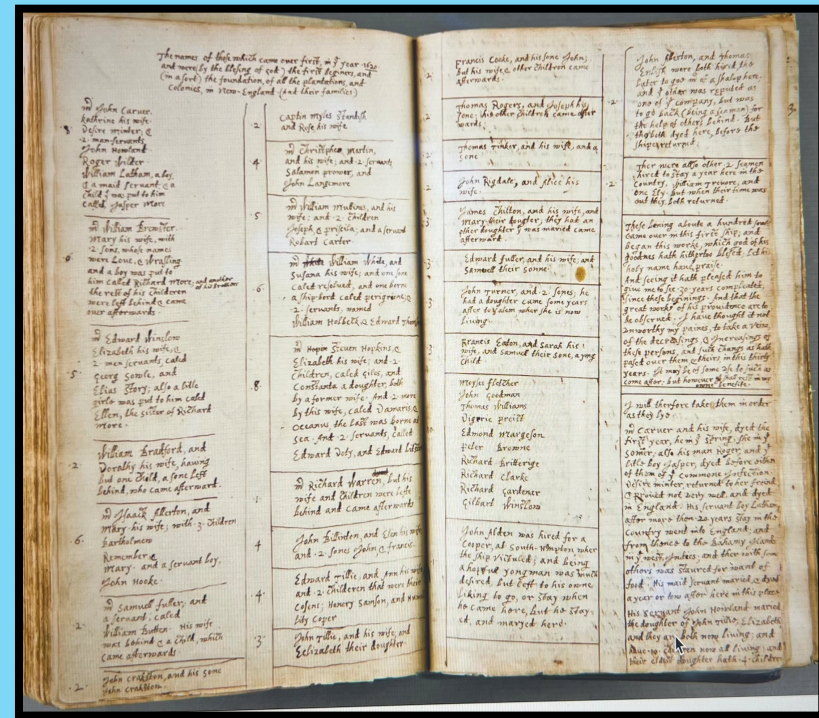 The names of those which came over first, in yͤ year 1620
and were (by the blesing of god) the first beginers, and
(in a sort) the foundation, of all the plantations, and
Colonies, in New-England. (And their families)
8
mr John Carver.
kathrine his wife.
Desire minter, &
2. man-servants
John Howland
Roger Wilder
William Latham, a boy,
& a maid servant. & a
child yͭ was put to him
caled, Jasper More
6
mr William Brewster.
Mary his wife, with
2. sons, whose names
were Love, & Wrasling
and a boy was put to
him caled Richard More; and another
of his brothers
the rest of his Children
were left behind & came
over afterwards.
5
mr Edward Winslow
Elizabeth his wife, &
2. men servants, caled
Georg Sowle, and
Elias Story; also a litle
girle was put to him caled
Ellen, the sister of Richard
More.
2
William Bradford, and
Dorathy his wife, having
but one child, a sone left
behind, who came afterward.
6
mr Isaack Allerton, and
Mary his wife; with 3. Children
Bartholmew
Remember, &
Mary. and a servant boy,
John Hooke.
2
mr Samuell fuller, and
a servant, caled
William Butten. His wife
was behind & a Child, which
came afterwards.
2
John Crakston, and his sone
John Crakston.
2
Captin Myles Standish
and Rose his wife
4
mr Christpher Martin,
and his wife; and 2. servants,
Salamon prower, and
John Langemore
5
mr William Mullines, and his
wife; and 2. Children
Joseph, & priscila; and a servant
Robart Carter.
6
mr William White, and
Susana his wife; and one sone
caled resolved, and one borne
a ship-bord caled peregriene; &
2. servants, named
William Holbeck, & Edward
8
mr Steven Hopkins, &
Elizabeth his wife; and 2.
Children, caled Giles, and
Constanta a doughter, both
by a former wife. And 2. more
by this wife, caled Damaris, &
Oceanus, the last was borne at
sea. And 2. servants, caled
Edward Doty, and Edward
1
mr Richard Warren, but his
wife and Children were lefte
behind and came afterwards
4
John Billinton, and Elen his wife
and 2. sones John & Francis.
4
Edward Tillie, and Ann his wife
and 2. Children that were their
Cosens; Henery Samson, and
Coper
3
John Tillie, and his wife; and
Eelizabeth their doughter
2
Francis Cooke, and his sone John;
But his wife, & other Children came
afterwards.
2
Thomas Rogers, and Joseph his
sone; his other Children came after
wards.
Thomas Tinker, and his wife, and a
sone
2
John Rigdale; and Alice his
wife.
3
James Chilton, and his wife, and
Mary their doughter; they had an
other doughter yͭ was maried came
afterward.
3
Edward fuller, and his wife; and
Samuell their sonne.
3
John Turner, and 2. sones; he
had a doughter came some years
after to Salem, wher she is now
living.
3
Francis Eaton, and Sarah his
wife, and Samuell their sone, a yong
child
Moyses fletcher
John Goodman
Thomas Williams
Digerie Preist
Edmond Margeson
Peter Browne
Richard Britterige
Richard Clarke
Richard Gardenar
Gilbart Winslow
John Alden was hired for a
Cooper, at South-Hampton wher
the ship victuled; and being
a hopfull yong man was much
desired, but left to his owne
liking to go, or stay when
he came here, but he stayed,
and maryed here.
John Allerton, and Thomas
Enlish were both hired, the
later to goe mr of a shalop here.
and yͤ other was reputed as
one of yͤ company, but was
to go back (being a seaman) for
the help of others behind. But
they both dyed here, before the
ship returned.
2
Ther were allso other 2. seamen
hired to stay a year here in the
Country, William Trevore, and
one Ely. But when their time was
out they both returned.
These being aboute a hundred sowls
came over in this first ship; and
began this worke, which god of his
goodnes hath hithertoo blesed; Let his
holy name have yͤ praise.
And seeing it hath pleased him to
give me to see 30. years compleated,
since these beginings. And that the
great works of his providence are to
be observed. I have thought it not
unworthy my paines, to take a veiw
of the decreasings, & Increasings of
these persons, and such changs as hath
pased over them, & theirs, in this thirty
years. It may be of some use to such as
come after; but however I shall rest in my
owne benefite.
I will therfore take them in order
as they lye.
mr Carver and his wife, dyed the
first year, he in yͤ spring, she in yͤ
somer; also his man Roger, and yͤ
litle boy Jasper, dyed before either
of them, of yͤ commone Infection.
Desire minter, returned to her freind
& proved not very well, and dyed
in England. His servant boy Latham
after more then 20. years stay in the
Country went into England; and
from thence to the Bahamy Ilands
in yͤ west Indees; and ther with some
others was starved for want of
food. His maid servant maried, & dyed
a year or tow after here in this place
His servant John Howland maried
the doughter of John Tillie, Elizabeth,
and they are both now living; and
have 10. Children now all living; and
their eldest doughter hath 4. Children